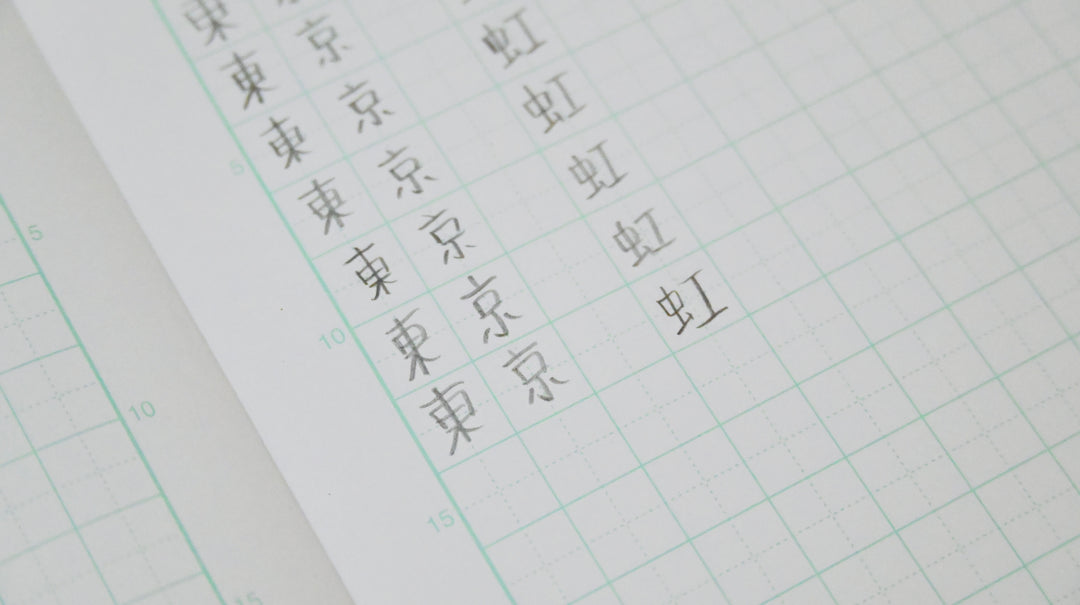 東 京 虹
東 京 虹
東 京 虹
東 京 虹
東 京 虹
東 京 虹
5
10
15
5
10
15